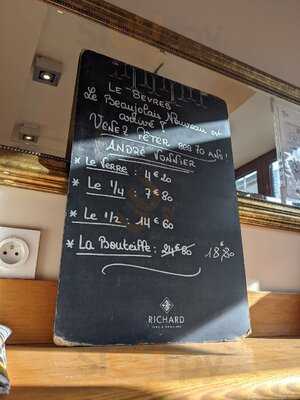 LE BEVRES
Le Beaujolais Nouveau est
arrivé !
VENEZ FÊTER SES 70 ANS !
ANDRÉ VONNIER
* Le Verre : 4€20
* Le 1/4 : 7€80
* Le 1/2 : 14€60
* La Bouteille : 24€80 18€80
RICHARD